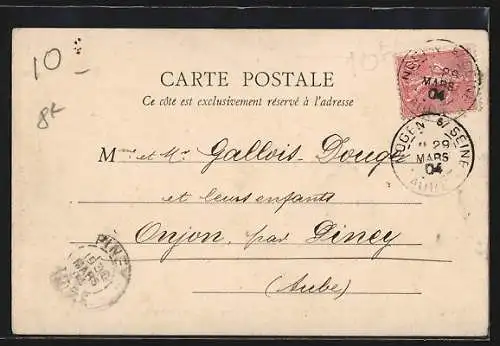 10
8k
CARTE POSTALE
Ce côté est exclusivement réservé à l'adresse
NOGENT S/ SEINE
29
MARS
04
AUBE
Mme et Mr Gallois-Dougé
et leurs enfants
Onjon, par Piney
(Aube)
PINEY
MARS